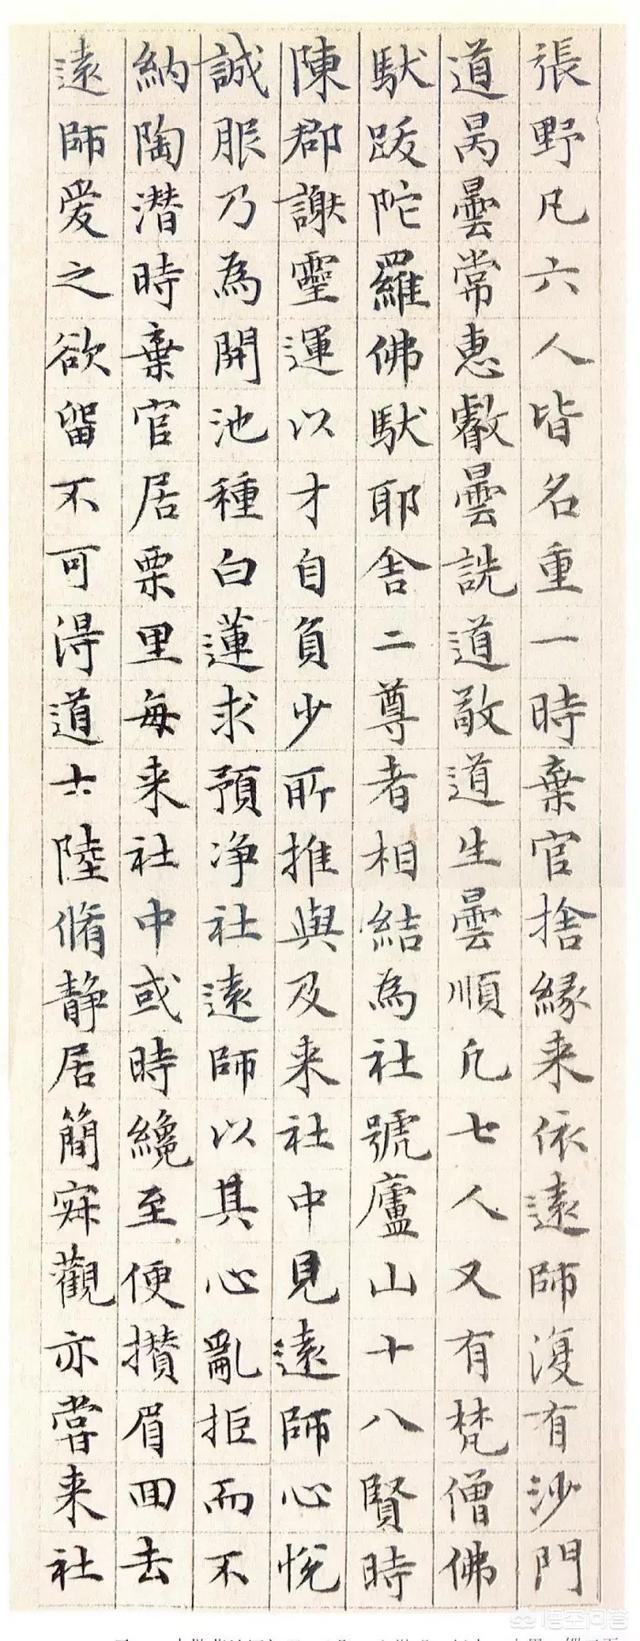 張野凡六人皆名重一時棄官捨緣来依遠師復有沙門
道昺曇常惠叡曇詵道敬道生曇順凡七人又有梵僧佛
馱跋陀羅佛馱耶舍二尊者相結為社號廬山十八賢時
陳郡謝靈運以才自負少所推與及来社中見遠師心悅
誠服乃為開池種白蓮求預净社遠師以其心亂拒而不
納陶潛時棄官居栗里每来社中或時纔至便攅眉回去
遠師愛之欲留不可得道士陸脩静居簡寂觀亦嘗来社
悟空问答